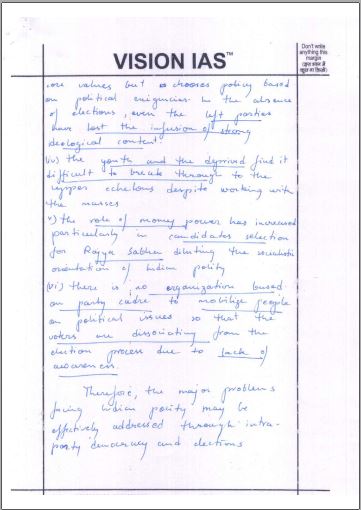 VISION IAS™
Don't write
anything this
margin
core values but chooses policy based
on political exigencies. In the absence
of elections, even the left parties
have lost the infusion of strong
ideological content
(iv) the youth and the deprived find it
difficult to break through to the
upper echelons despite working with
the masses
v) the role of money power has increased
particularly in candidates selection
for Rajya Sabha diluting the socialistic
orientation of Indian polity
(vi) there is no organization based
on party cadre to mobilize people
on political issues so that the
voters are dissociating from the
election process due to lack of
awareness.
Therefore, the major problems
facing Indian polity may be
effectively addressed through intra-
party democracy and elections